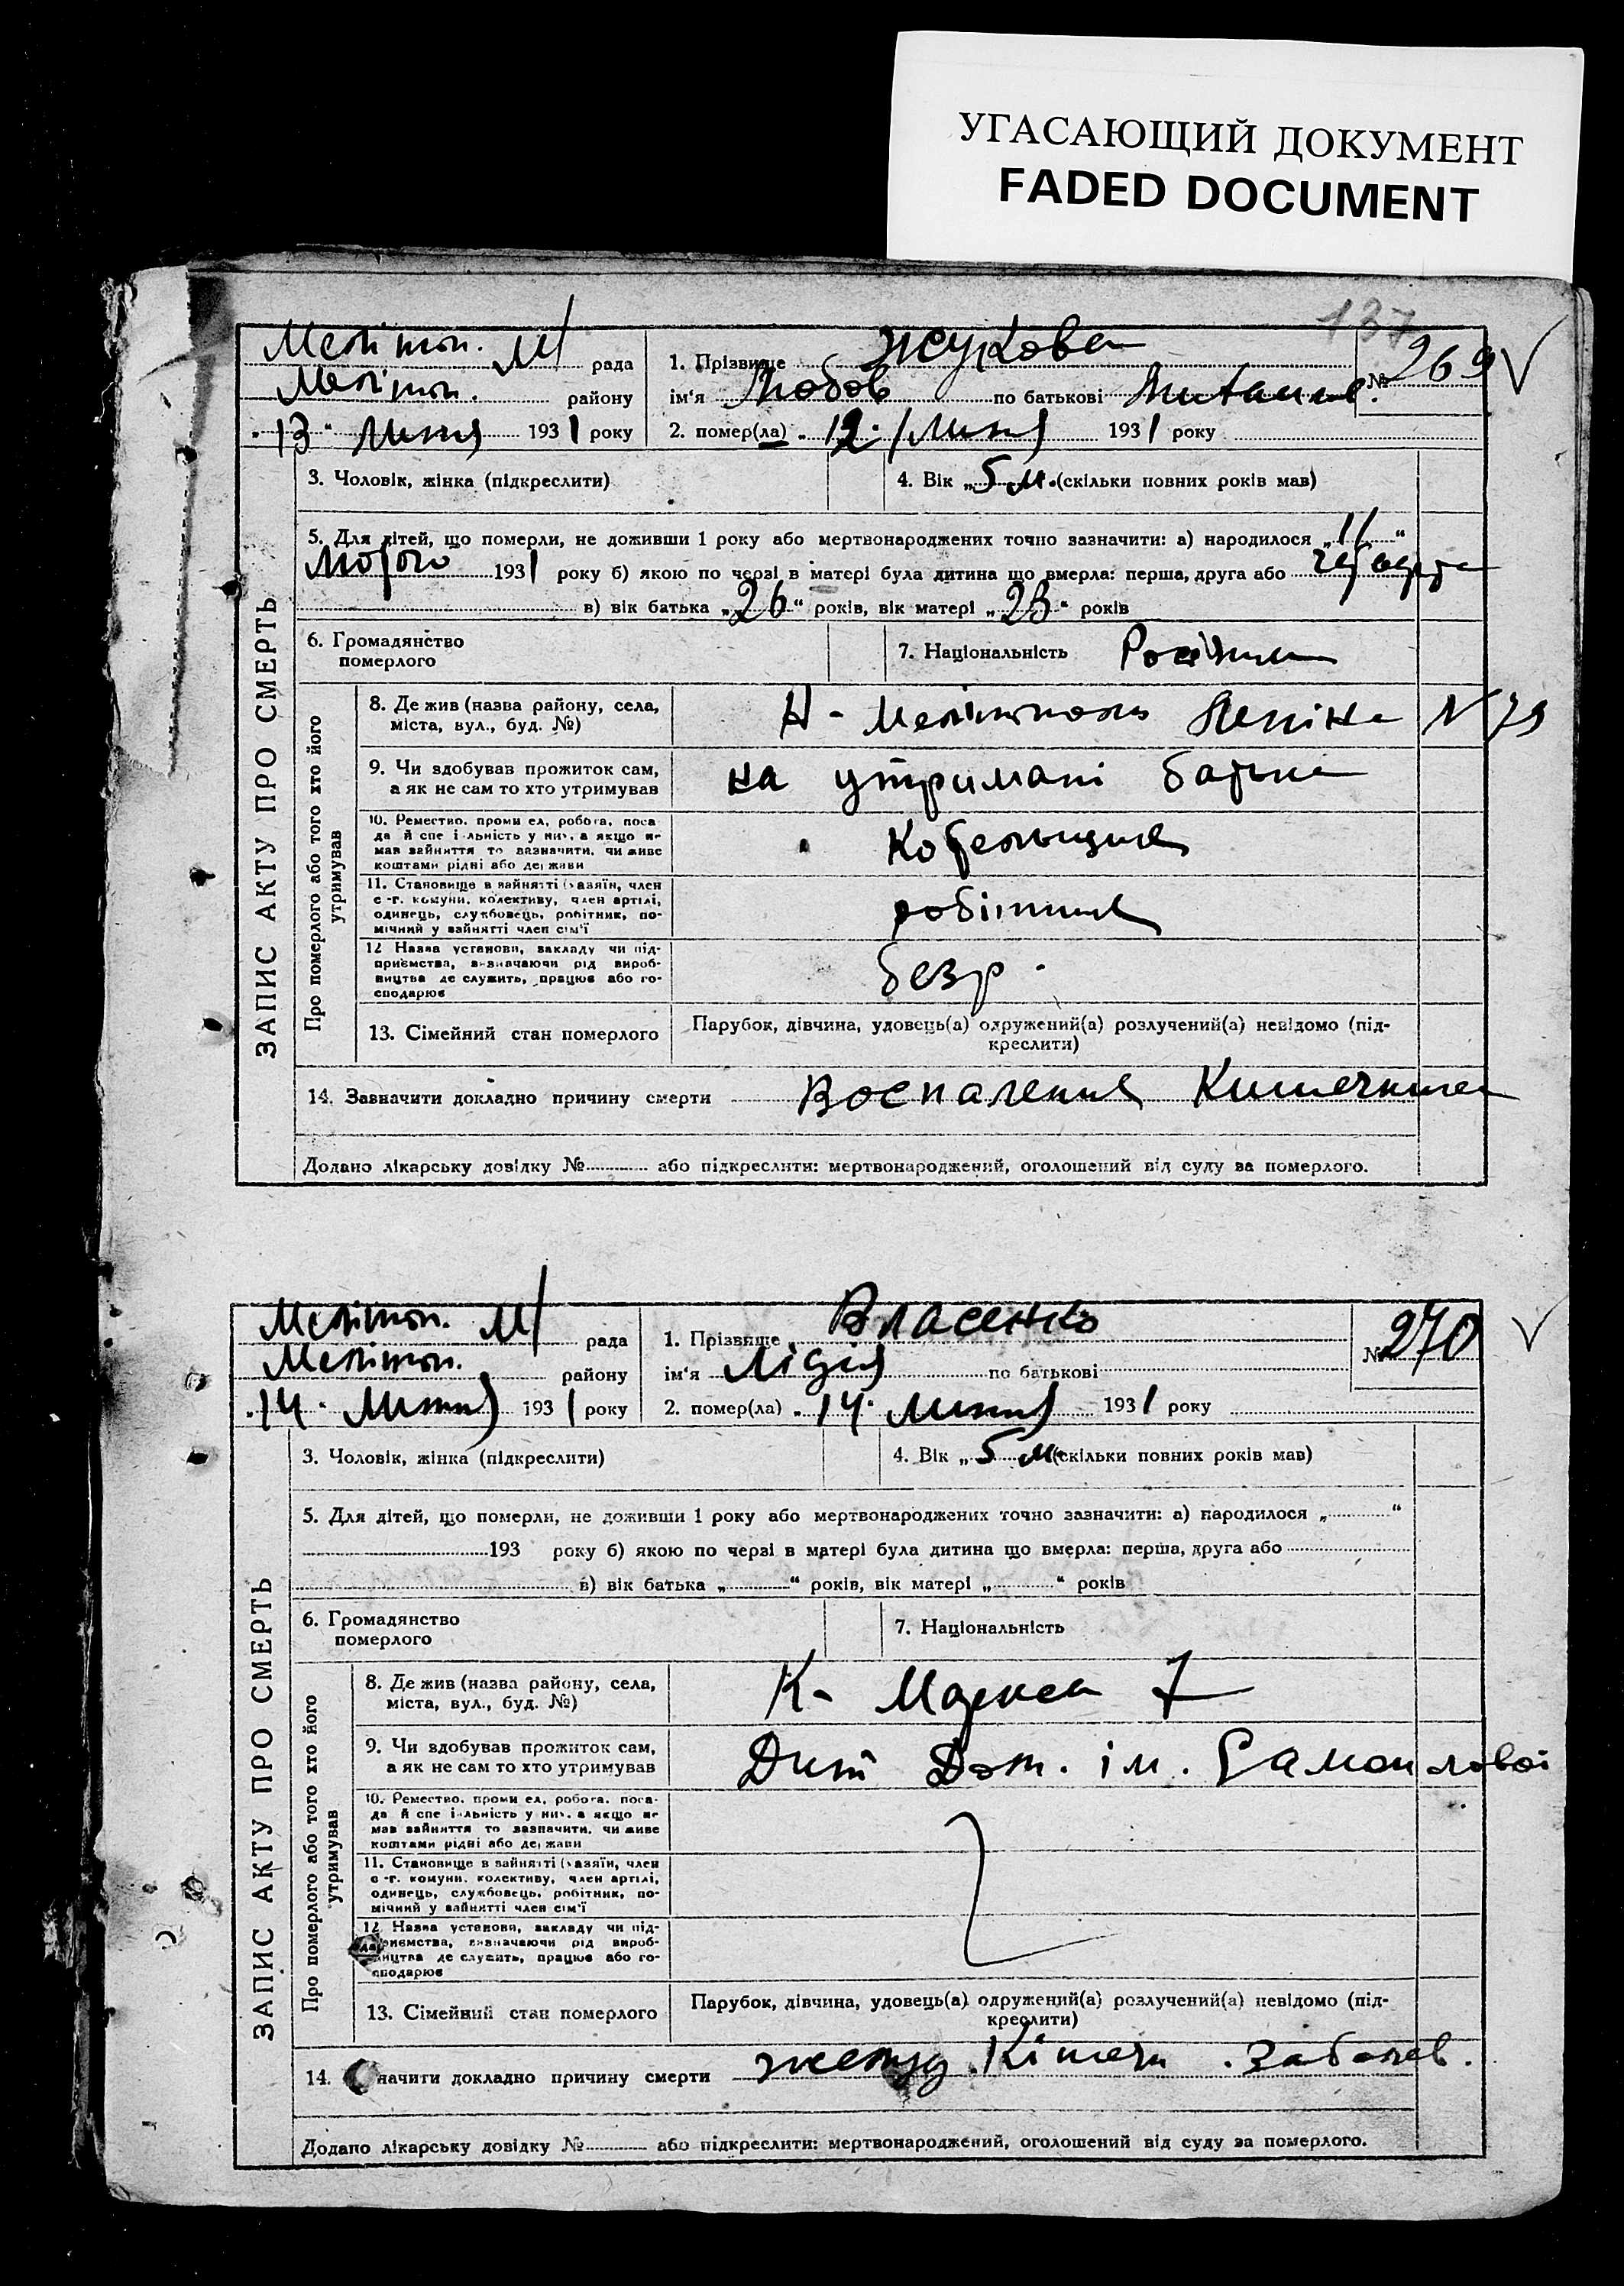 УГАСАЮЩИЙ ДОКУМЕНТ
FADED DOCUMENT
137
Меліт. М/ рада
Меліт. району
„13“ Липня 1931 року
1. Прізвище Жукова
ім‘я Любов по батькові
№ 269
2. помер(ла) „12“ Липня 1931 року
ЗАПИС АКТУ ПРО СМЕРТЬ
3. Чоловік, жінка (підкреслити)
4. Вік „5 м. (скільки повних років мав)
5. Для дітей, що померли, не доживши 1 року або мертвонароджених точно зазначити: а) народилося „11“
Лютого 1931 року б) якою по черзі в матері була дитина що вмерла: перша, друга або
в) вік батька „26“ років, вік матері „23“ років
6. Громадянство
померлого
7. Національність Росіянка
Про померлого або того хто його
утримував
8. Де жив (назва району, села,
міста, вул., буд. №)
Н-Мелітополь Леніна N 79
9. Чи здобував прожиток сам,
а як не сам то хто утримував
на утримані батька
10. Ремество, промисел, робота, поса
да й спеціальність у них, а якщо не
мав зайняття то зазначити, чи живе
коштами рідні або держави
Котельщик
11. Становище в зайнятті (хазяїн, член
с.-г. комуни, колективу, член артілі,
одинець, службовець, робітник, по-
мічний у зайнятті член сім'ї
робітник
12 Назва установи, закладу чи під-
приємства, визначаючи рід вироб-
ництва де служить, працює або го-
сподарює
безр.
13. Сімейний стан померлого
Парубок, дівчина, удовець(а) одружений(а) розлучений(а) невідомо (під-
креслити)
14. Зазначити докладно причину смерти Воспаления Кишечника
Додано лікарську довідку № або підкреслити: мертвонароджений, оголошений від суду за померлого.
Меліт. М/ рада
Меліт. району
„14“ Липня 1931 року
1. Прізвище Власенко
ім‘я Лідія по батькові
№ 270
2. помер(ла) „14“ Липня 1931 року
ЗАПИС АКТУ ПРО СМЕРТЬ
3. Чоловік, жінка (підкреслити)
4. Вік „5 м. (скільки повних років мав)
5. Для дітей, що померли, не доживши 1 року або мертвонароджених точно зазначити: а) народилося „ “
193 року б) якою по черзі в матері була дитина що вмерла: перша, друга або
в) вік батька „ “ років, вік матері „ “ років
6. Громадянство
померлого
7. Національність
Про померлого або того хто його
утримував
8. Де жив (назва району, села,
міста, вул., буд. №)
К-Маркса 7
9. Чи здобував прожиток сам,
а як не сам то хто утримував
Дит Дом. ім. Самойлової
10. Ремество, промисел, робота, поса-
да й спеціальність у них, а якщо не
мав зайняття то зазначити, чи живе
коштами рідні або держави
11. Становище в зайнятті (хазяїн, член
с.-г. комуни, колективу, член артілі,
одинець, службовець, робітник, по-
мічний у зайнятті член сім'ї
12 Назва установи, закладу чи під-
приємства, визначаючи рід вироб-
ництва де служить, працює або го-
сподарює
13. Сімейний стан померлого
Парубок, дівчина, удовець(а) одружений(а) розлучений(а) невідомо (під-
креслити)
14. начити докладно причину смерти желуд. Кішечн. Заболев.
Додано лікарську довідку № або підкреслити: мертвонароджений, оголошений від суду за померлого.